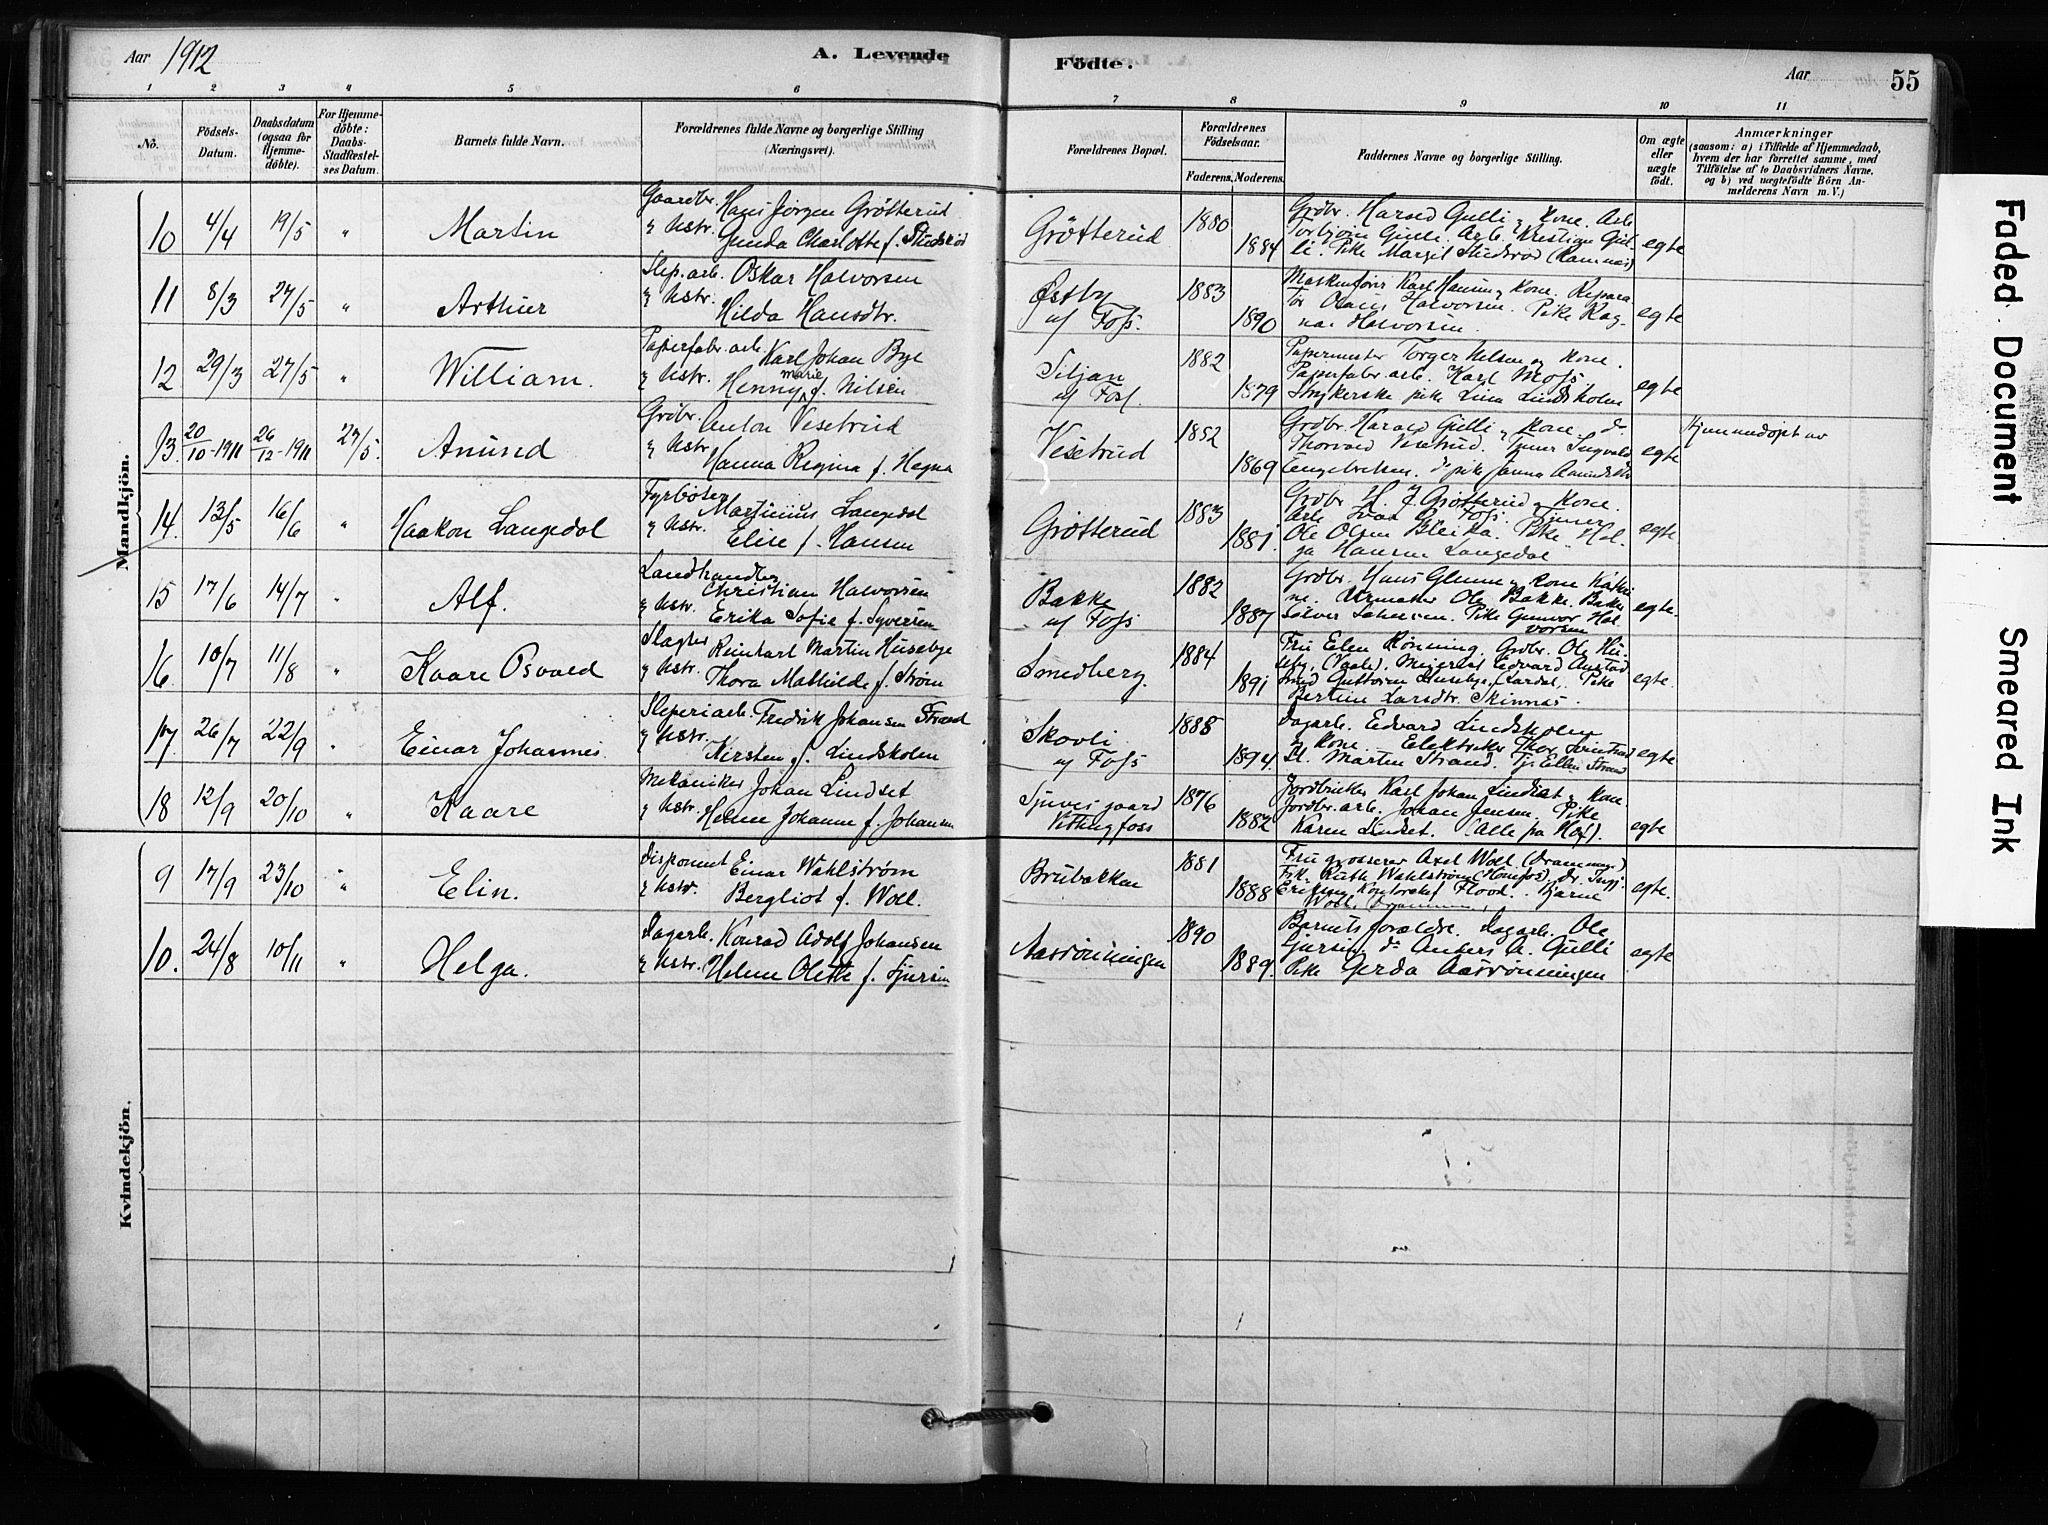 Aar 1912
A. Levende
Födte.
Aar
55
1 2 3 4 5 6 7 8 9 10 11
No.
Födsels-Datum.
Daabsdatum (ogsaa for Hjemme-döbte).
For Hjemme-döbte: Daabs-Stadfæstel-ses Datum.
Barnets fulde Navn.
Forældrenes fulde Navne og borgerlige Stilling (Næringsvei).
Forældrenes Bopæl.
Forældrenes Födselsaar.
Faderens. Moderens.
Faddernes Navne og borgerlige Stilling.
Om ægte eller uægte födt.
Anmærkninger
(saasom: a) i Tilfælde af Hjemmedaab,
hvem der har forrettet samme, med
Tilföielse af to Daabsvidners Navne.
og b) ved uægtefödte Börn An-
melderens Navn m. V.)
Mandkjön.
10 4/4 19/5 " Martin
Gaardbr. Hans Jörgen Grötterud
& Hstr. Gunda Charlotte f. Studsrød
Grötterud 1880 1884
Grdbr. Harald Gulli & Kone. Arb.
Torbjörn Gulli. Arb. Kristian Gul-
li. Pike Margit Studsrød (Ramnes)
egte
11 8/3 27/5 " Arthur
Slip.arb. Oskar Halvorsen
& Hstr. Hilda Hansdtr.
Østby u/ Foss. 1883 1890
Maskinfører Karl Hansen & Kone. Repara-
tør Olaus Halvorsen. Pike Rag-
na Halvorsen.
egte
12 29/3 27/5 " William.
Papirfabr.arb. Karl Johan Bye
& Hstr. Henny Marie f. Nilsen
Siljan u/ Foss. 1882 1879
Papirmester Torger Nilsen og Kone.
Papirfabr.arb. Karl Moss
Strykerske pike Lina Lindsholm
egte
13. 20/10-1911 26/12-1911 27/5. Anund
Grdbr. Anton Vesetrud
& Hstr. Hanna Regina f. Hegna
Vesetrud 1852 1869
Grdbr. Harald Gulli & Kone. do.
Thorvald Vesetrud. Tjener Ingvald
Engebretsen. do pike Janna
egte
Hjemmedöpt av
14. 13/5 16/6 " Haakon Langedal
Fyrbøter Martinius Langedal
& Hstr. Elise f. Hansen
Grötterud 1883 1881.
Grdbr. H. J. Grötterud & Kone.
Arb. Foss. Tjener
Ole Olsen Bleika. Pike Hel-
ga Hansen Langedal
egte
15 17/6 14/7 " Alf.
Landhandler Christian Halvorsen
& Hstr. Erika Sofie f. Syversen
Bakke u/ Foss 1882 1887
Grdbr. Hans Glenne & Kone Katri-
ne. Urmaker Ole Bakke. Baker
Sølver Pike Gunvor Hal-
vorsen
egte.
16. 10/7 11/8 " Kaare Osvald
Slagter Reinhart Martin Huseby
& Hstr. Thora Mathilde f. Strøm
Smedberg 1884 1891
Fru Elen Rønning. Grdbr. Ole Hu-
seby, (Vaale). Meieriest. Edvard
Smed Guttorm Huseby, Lardal. Pike
Bertine Larsdtr. Skinnes.
egte.
17. 26/7 22/9 " Einar Johannes.
Sliperiarb. Fredrik Johansen Strand
& Hstr. Kirsten f. Lindsholm
Skovli u/ Foss 1888 1894.
Dagarb. Edvard Lindsholm
& Kone. Elektriker Thor
Martin Strand. Tj. Ellen Strand
egte
18 12/9 20/10 " Kaare
Mekaniker Johan Lindset
& Hstr. Helene Johanne f. Johansen
Tjuvesgaard Vittingfoss 1876 1882
Jordbruker Karl Johan Lindset & Kone.
Jordbr.arb. Johan Jensen. Pike
Karen Lindset. (Alle på Hof).
egte
Kvindekjön.
9 17/9 23/10 " Elin.
Disponent Einar Wahlstrøm
& Hstr. Bergliot f. Woll.
Brubakken 1881 1888
Fru grosserer Axel Woll (Drammen)
Frk. Ruth Wahlstrøm (Honefos). Dr. Trygv.
Eriksen, Kontorchef Flood. Bjarne
Woll, (Drammen).
egte.
10. 24/8 10/11 " Helga.
Dagarb. Konrad Adolf Johansen
& Hstr. Helene Olette f. Sjursen
Aasrönningen 1890 1889.
Barnets forældre. Dagarb. Ole
Sjursen, do Anders A. Gulli
Pike Gerda Aasrönningen
egte
Faded Document
Smeared Ink